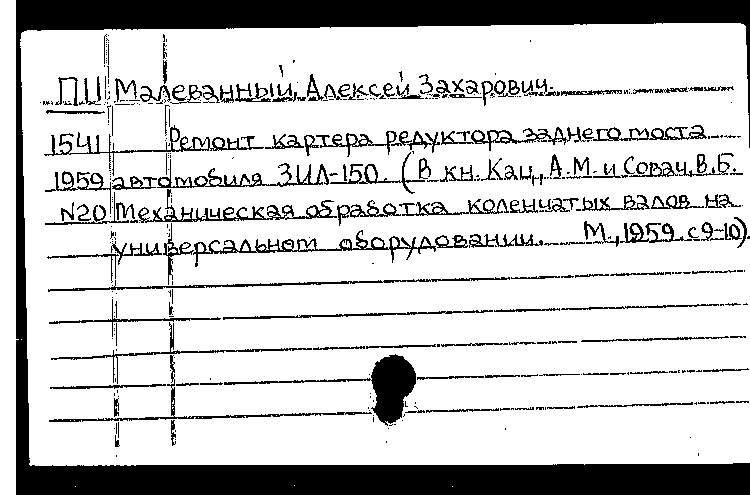 ПЦ Малеванный, Алексей Захарович.
1541 Ремонт картера редуктора заднего моста
1959 автомобиля ЗИЛ-150. (В кн. Кац, А.М. и Совач, В.Б.
N20 Механическая обработка коленчатых валов на
универсальном оборудовании. М., 1959. с 9-10)